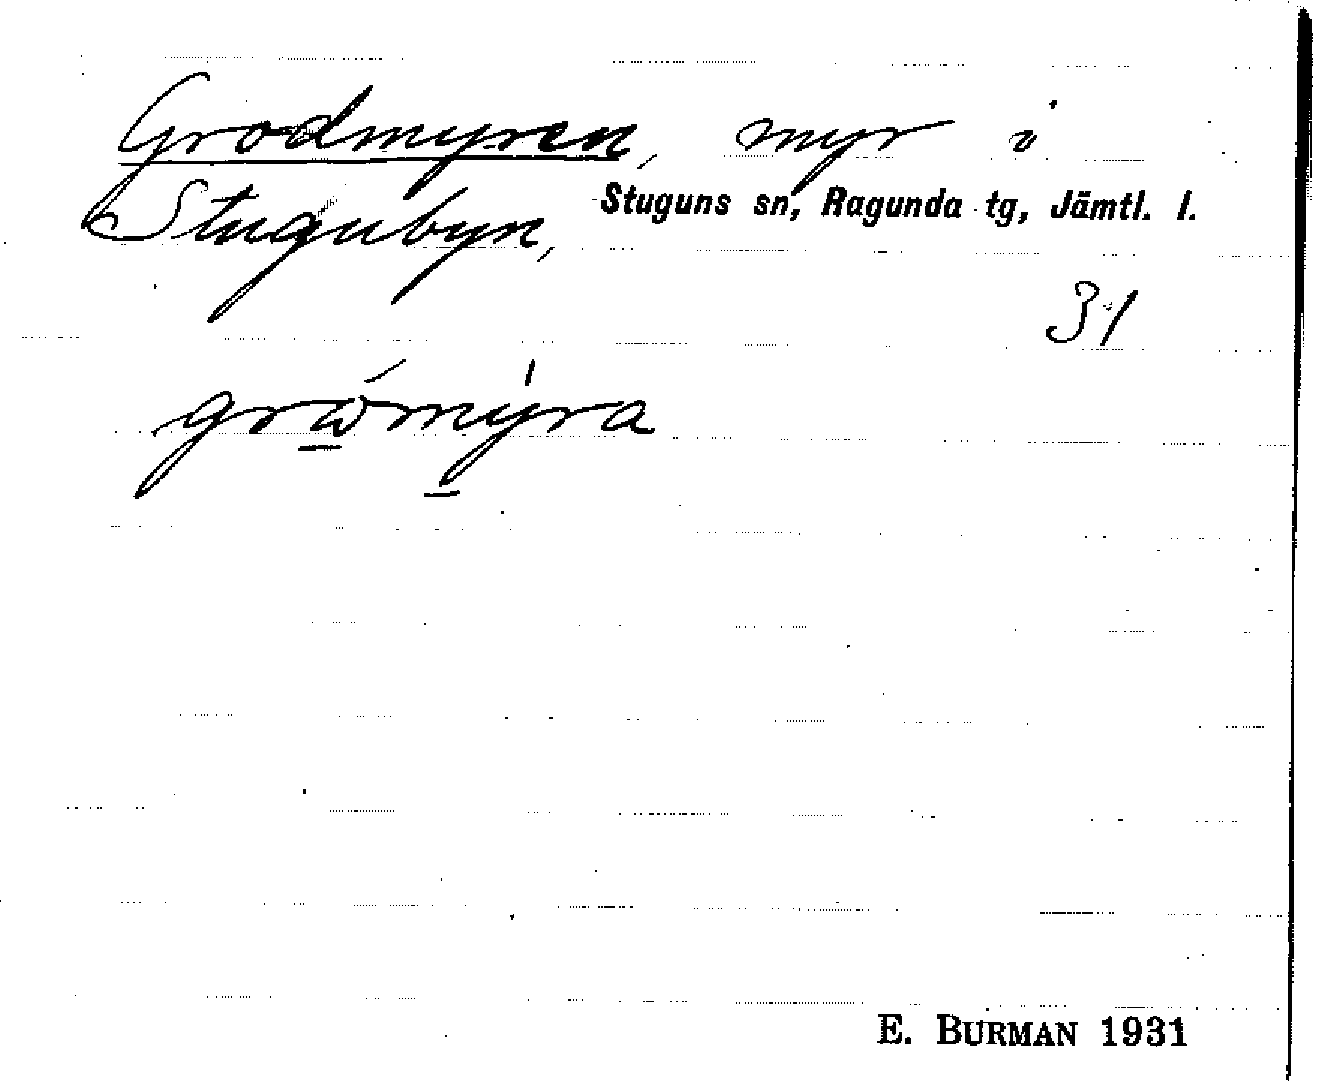 Grodmyren, myr i
Stugubyn, Stuguns sn, Ragunda tg, Jämtl. l.
31
grώ̲my̲̍ra
E. BURMAN 1931